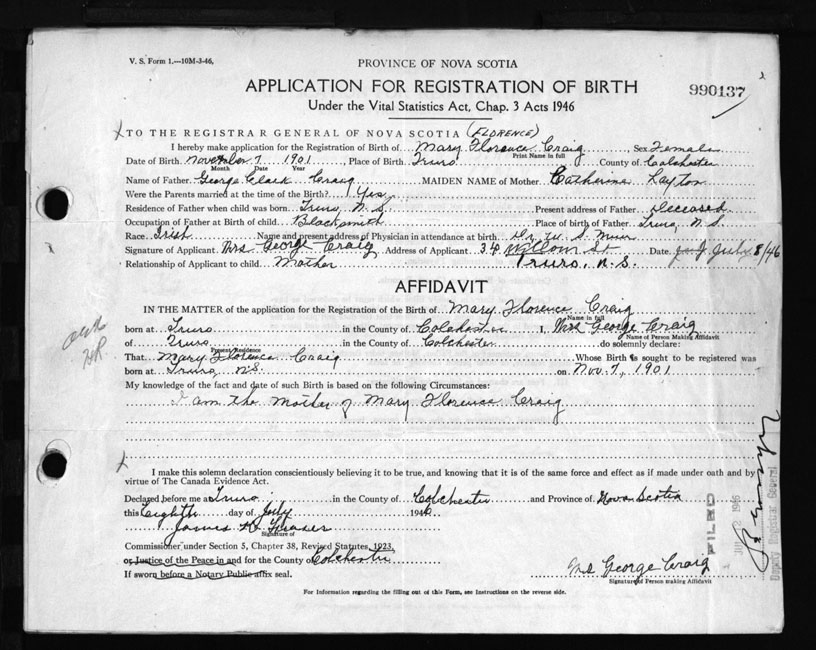 V. S. Form 1.—10M-3-46.
PROVINCE OF NOVA SCOTIA
APPLICATION FOR REGISTRATION OF BIRTH
990137
Under the Vital Statistics Act, Chap. 3 Acts 1946
TO THE REGISTRAR GENERAL OF NOVA SCOTIA (FLORENCE)
I hereby make application for the Registration of Birth of Mary Florence Craig, Sex Female
Print Name in full
Date of Birth November 7 1901, Place of Birth Truro County of Colchester
Month Day Year
Name of Father George Clark Craig MAIDEN NAME of Mother Catherine Layton
Were the Parents married at the time of the Birth? Yes
Residence of Father when child was born Truro N.S. Present address of Father Deceased
Occupation of Father at Birth of child Blacksmith Place of birth of Father Truro, N.S.
Race Irish Name and present address of Physician in attendance at birth Dr. W. S. Muir
Signature of Applicant Mrs George Craig Address of Applicant 34 St Date July 8/46
Relationship of Applicant to child Mother Truro, N.S.
AFFIDAVIT
IN THE MATTER of the application for the Registration of Birth of Mary Florence Craig
Name in full
born at Truro in the County of Colchester I, Mrs George Craig
Name of Person Making Affidavit
of Truro in the County of Colchester do solemnly declare:
Present Residence
That Mary Florence Craig Whose Birth is sought to be registered was
born at Truro N.S. on Nov. 7, 1901
My knowledge of the fact and date of such Birth is based on the following Circumstances:
I am the mother of Mary Florence Craig
I make this solemn declaration conscientiously believing it to be true, and knowing that it is of the same force and effect as if made under oath and by
virtue of The Canada Evidence Act.
Declared before me at Truro in the County of Colchester and Province of Nova Scotia
this Eighth day of July 1946
James Fraser
Signature of
Commissioner under Section 5, Chapter 38, Revised Statutes, 1923,
or Justice of the Peace in and for the County of Colchester
If sworn before a Notary Public affix seal.
Mrs George Craig
Signature of Person making Affidavit
For Information regarding the filling out of this Form, see Instructions on the reverse side.
FILED
1946
Deputy Registrar General